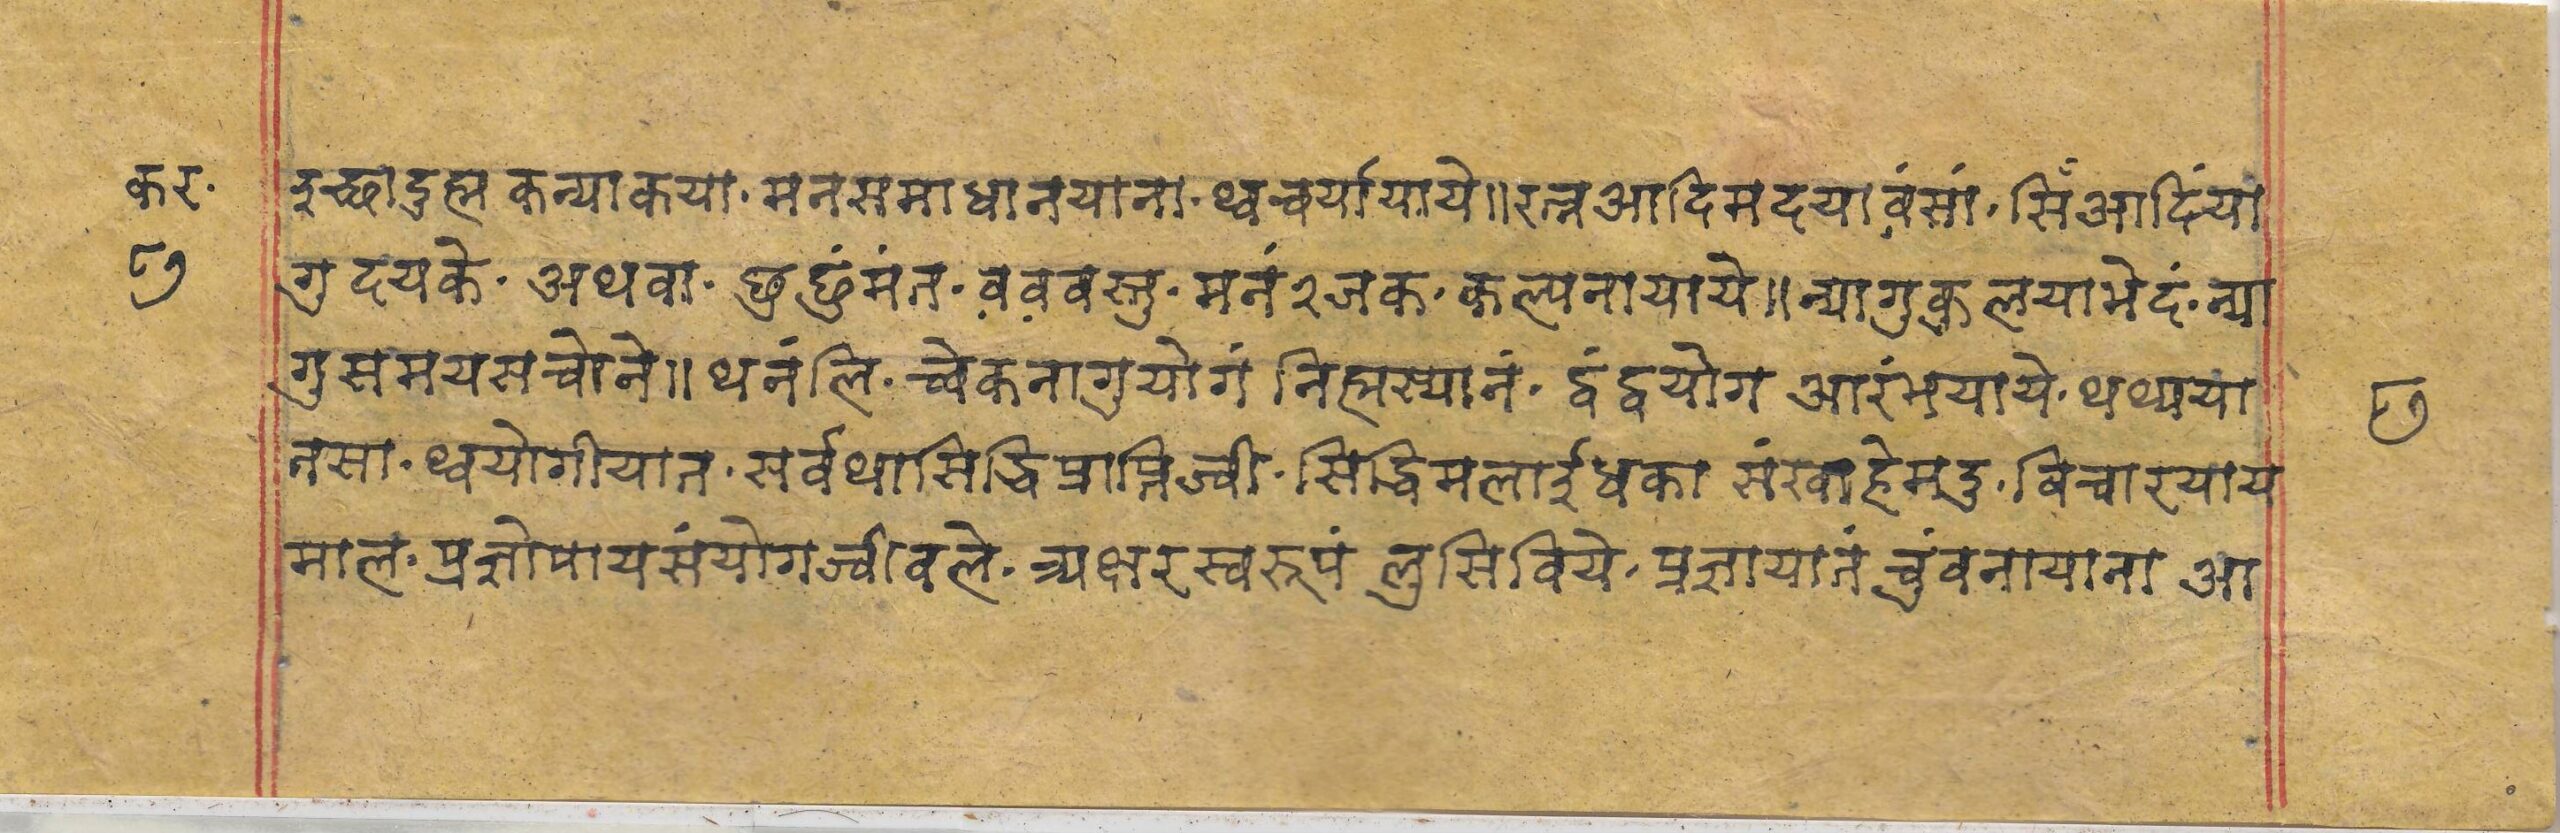 कर· इच्छादुह्म कन्याकया· मनसमाधानयाना· थ्वचर्यायाये॥रत्नआदिमदयाव़ंसां· सिँआदिंया
८७ गुदयके· अथवा· छुछुंमंत· व़व़वस्तु· मनंरजक· कल्पनायाये॥न्यागुकुलयाभेदं· न्या
गुसमयसचोने॥ थनंलि· च्वेकनागुयोगं निह्मस्यानं· द्वंद्वयोग आरंभयाये· थथ्यया ८७
तसा· थ्वयोगीयात· सर्वथासिद्धिप्राप्तिज्वी· सिद्धिमलाईधका संखाहेमदु· विचारयाय
माल· प्रज्ञोपायसंयोगज्वीवले· त्र्यक्षरस्वरूपं लुसिविये· प्रज्ञायातं चुंवनायाना आ